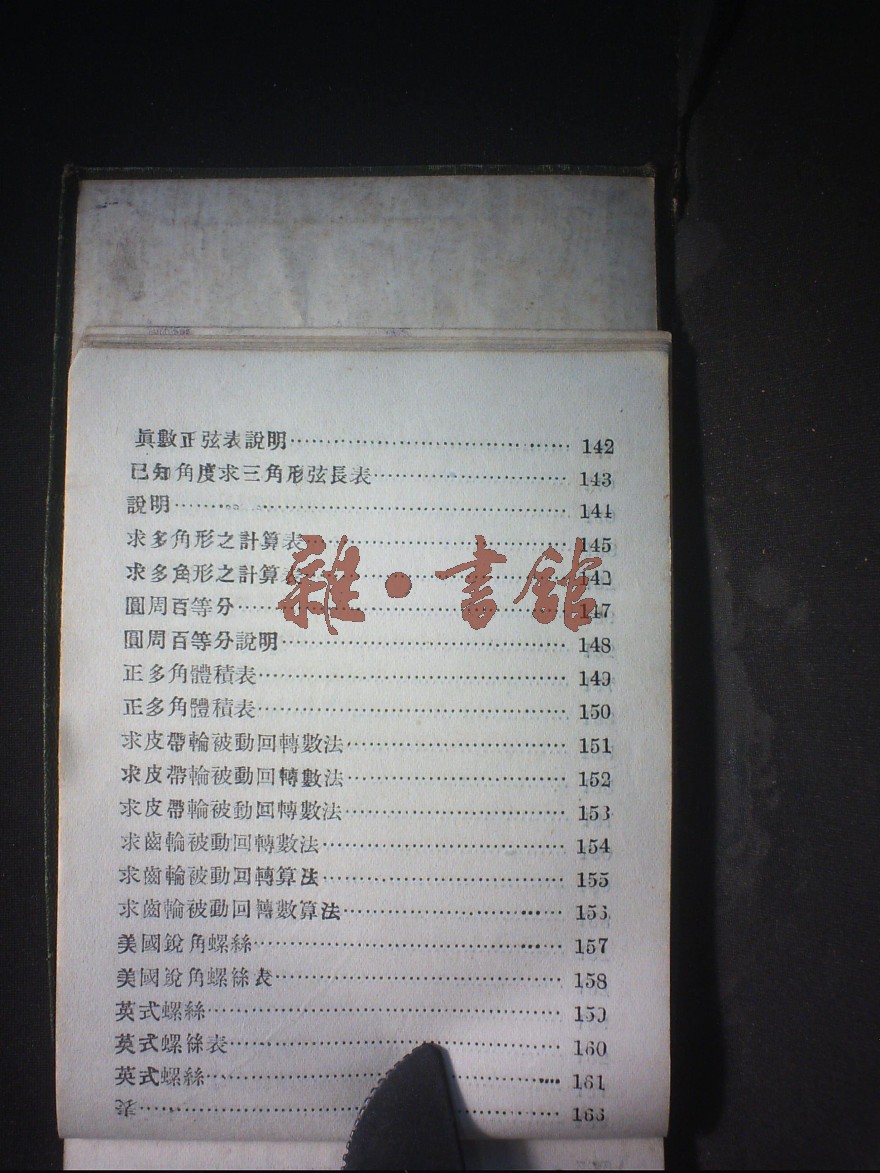 眞數正弦表說明⋯⋯142
已知角度求三角形弦長表⋯⋯143
說明⋯⋯144
求多角形之計算表⋯⋯145
求多角形之計算表⋯⋯
圓周百等分⋯⋯147
圓周百等分說明⋯⋯148
正多角體積表⋯⋯149
正多角體積表⋯⋯150
求皮帶輪被動回轉數法⋯⋯151
求皮帶輪被動回轉數法⋯⋯152
求皮帶輪被動回轉數法⋯⋯153
求齒輪被動回轉數法⋯⋯154
求齒輪被動回轉算法⋯⋯155
求齒輪被動回轉數算法⋯⋯156
美國銳角螺絲⋯⋯157
美國銳角螺絲表⋯⋯158
英式螺絲⋯⋯159
英式螺絲表⋯⋯160
英式螺絲⋯⋯161
表⋯⋯166
雜·書館